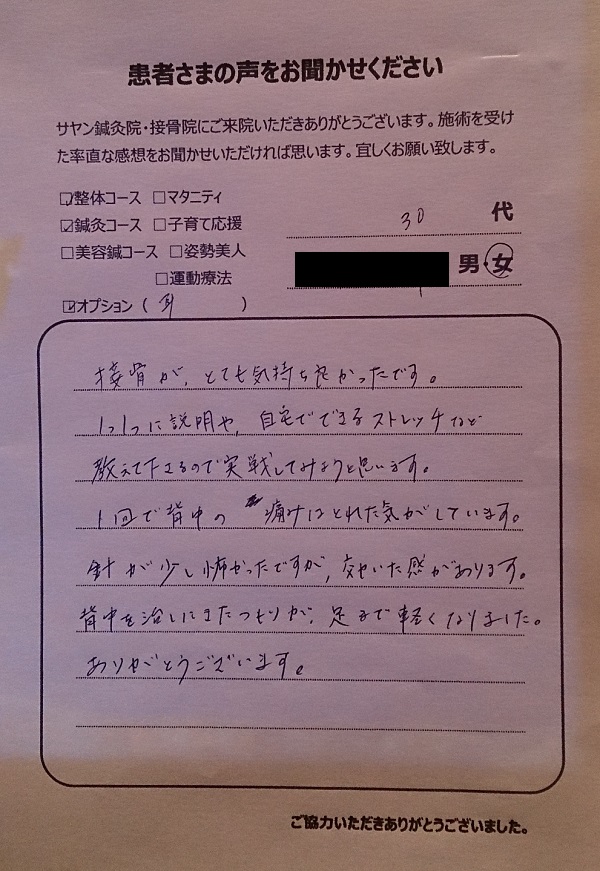 患者さまの声をお聞かせください
サヤン鍼灸院・接骨院にご来院いただきありがとうございます。施術を受け
た率直な感想をお聞かせいただければ思います。宜しくお願い致します。
☑整体コース □マタニティ
☑鍼灸コース □子育て応援
30 代
□美容鍼コース □姿勢美人
男・女
□運動療法
☑オプション ( 耳 )
接骨が、とても気持ち良かったです。
1つ1つに説明や、自宅でできるストレッチなど
教えて下さるので実戦してみようと思います。
1回で背中の 痛みはとれた気がしています。
針が少し怖かったですが、効いた感があります。
背中を治しにきたつもりが、足まで軽くなりました。
ありがとうございます。
ご協力いただきありがとうございました。